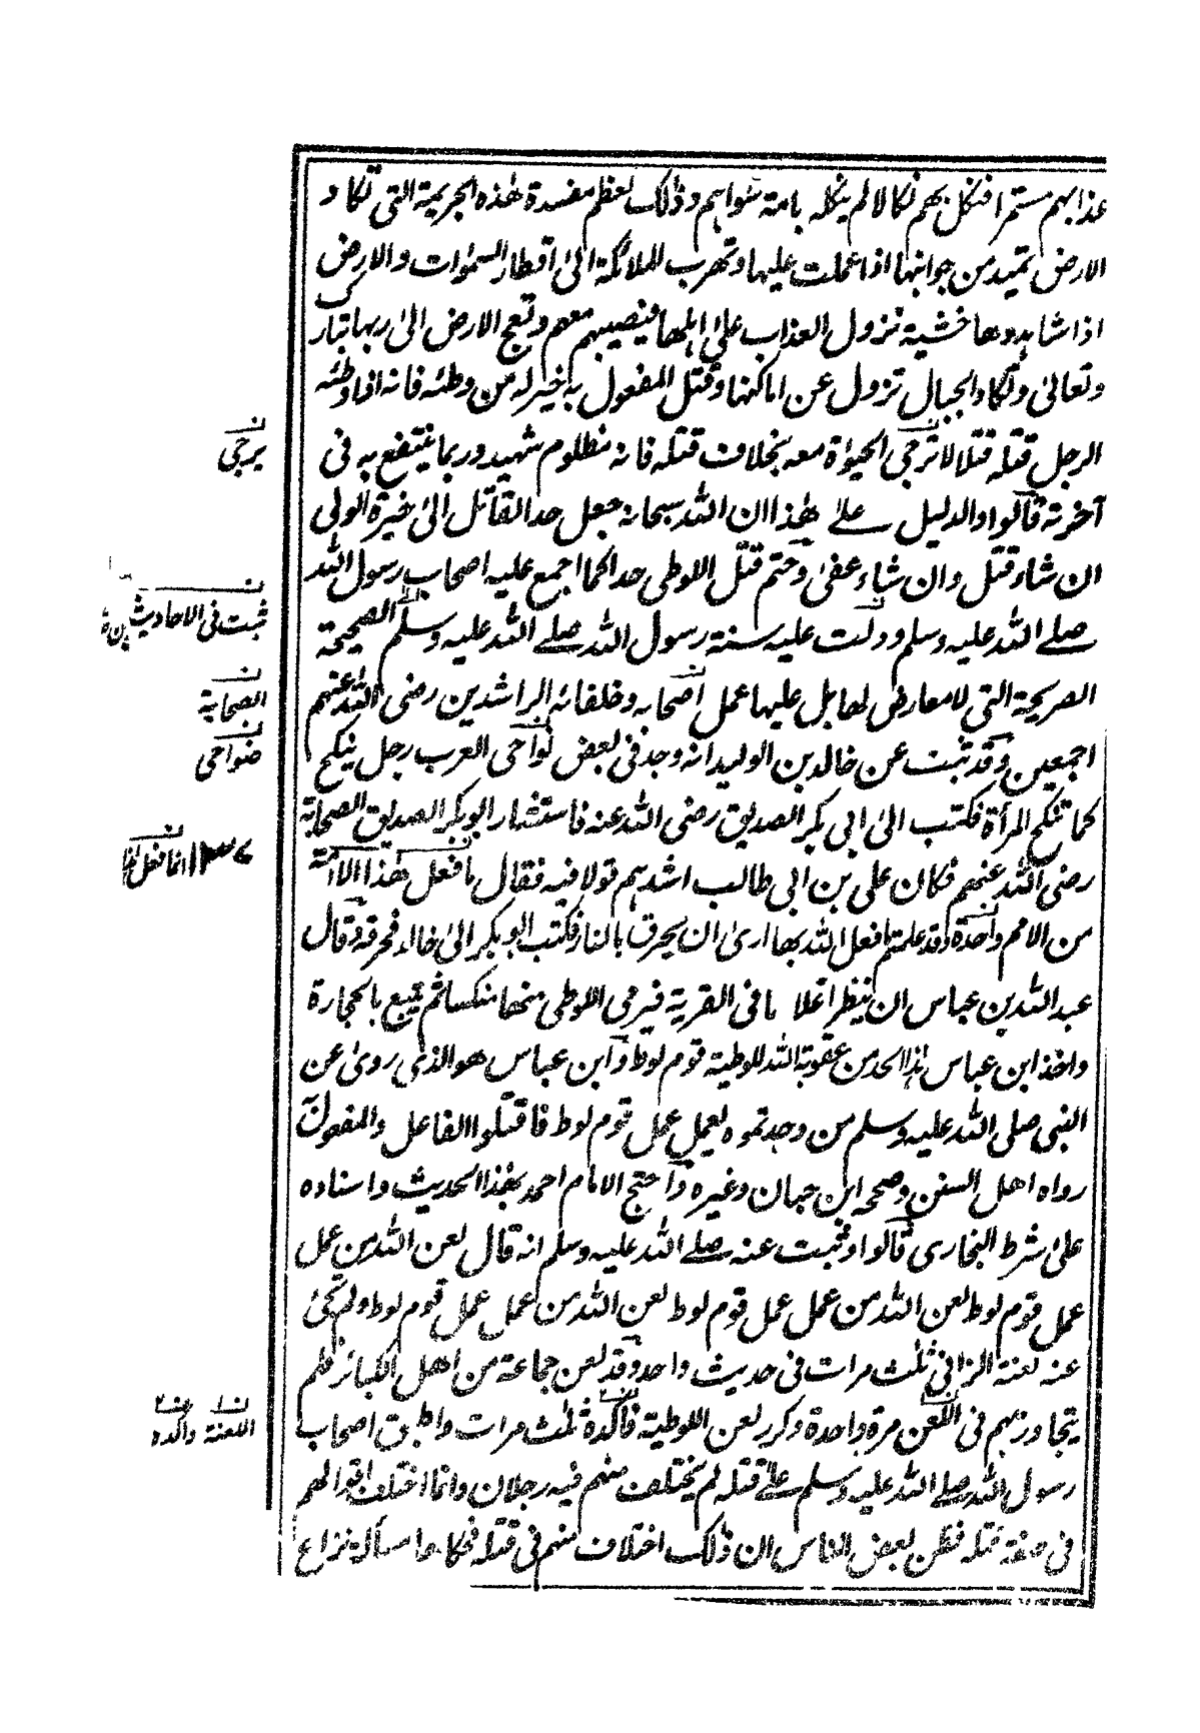 عذابهم مستمرا فنكل بهم نكالا لم ينكله بامة سواهم وذلك لعظم مفسدة هذه الجريمة التي تكاد
الارض تميد من جوانبها اذا عملت عليها وتهرب الملائكة الى اقطار السموات والارض
اذا شاهدوها خشية نزول العذاب على اهلها فيصيبهم معهم وتعج الارض الى ربها تبارك
وتعالى وتكاد الجبال تزول عن اماكنها وقتل المفعول به خير له من وطئه فانه اذا وطئه
الرجل قتله قتلا لا ترجى الحيوة معه بخلاف قتله فانه مظلوم شهيد وربما ينتفع به في
آخرته قالوا والدليل على هذا ان الله سبحانه جعل حد القاتل الى خيرة الولي
ان شاء قتل وان شاء عفى وحتم قتل اللوطي حدا كما اجمع عليه اصحاب رسول الله
صلى الله عليه وسلم ودلت عليه سنة رسول الله صلى الله عليه وسلم الصحيحة
الصريحة التي لا معارض لها بل عليها عمل اصحابه وخلفائه الراشدين رضى الله عنهم
اجمعين وقد ثبت عن خالد بن الوليد انه وجد في بعض نواحى العرب رجل ينكح
كما تنكح المرأة فكتب الى ابي بكر الصديق رضى الله عنه فاستشار ابو بكر الصديق الصحابة
رضى الله عنهم فكان علي بن ابي طالب اشدهم قولا فيه فقال ما فعل هذا الا امة
من الامم واحدة وقد علمتم ما فعل الله بها ارى ان يحرق بالنار فكتب ابو بكر الى خالد فحرقه وقال
عبد الله بن عباس ان ينظر اعلا ما في القرية فيرمى اللوطى منها منكسا ثم يتبع بالحجارة
واخذ ابن عباس هذا الحد من عقوبة الله للوطية قوم لوط وابن عباس هو الذى روى عن
النبي صلى الله عليه وسلم من وجدتموه يعمل عمل قوم لوط فاقتلوا الفاعل والمفعول
رواه اهل السنن وصححه ابن حبان وغيره واحتج الامام احمد بهذا الحديث واسناده
على شرط البخارى قالوا وثبت عنه صلى الله عليه وسلم انه قال لعن الله من عمل
عمل قوم لوط لعن الله من عمل عمل قوم لوط لعن الله من عمل عمل قوم لوط ولم تجئ
عنه لعنة الزاني ثلث مرات في حديث واحد وقد لعن جماعة من اهل الكبائر فلم
يتجاوز بهم في اللعن مرة واحدة وكرر لعن اللوطية فاكده ثلث مرات واطبق اصحاب
رسول الله صلى الله عليه وسلم على قتله لم يختلف منهم فيه رجلان وانما اختلف اقوالهم
في صفة قتله فظن بعض الناس ان ذلك اختلاف منهم في قتله فحكاها مسألة نزاع
ن
يرجى
ن
ثبت في الاحاديث
ن
الصحابة
ن
ضواحى
ن
انما فعل هذا
ن١ ن٢
اللعنة واكده